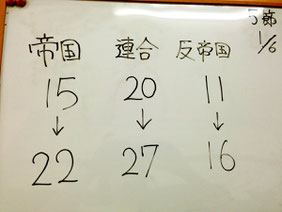 5節
1/6
帝国 連合 反帝国
15 20 11
↓ ↓ ↓
22 27 16